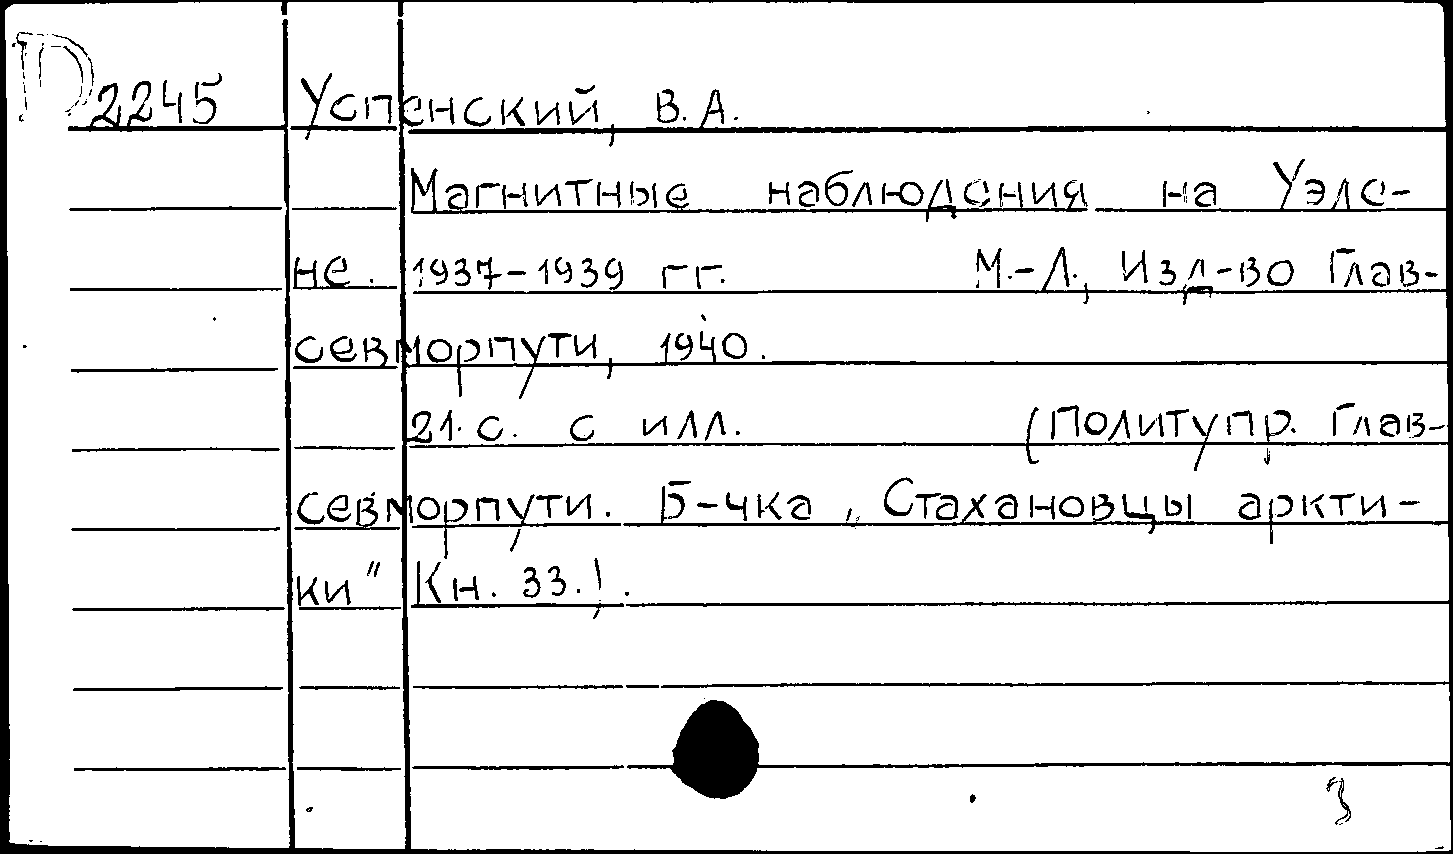 П2245 Успенский, В.А.
Магнитные наблюдения на Уэле-
не. 1937-1939 гг. М.-Л., Изд-во Глав-
севморпути, 1940.
21 с. с илл. (Политупр. Глав-
севморпути. Б-чка „Стахановцы аркти-
ки" Кн. 33.).
3